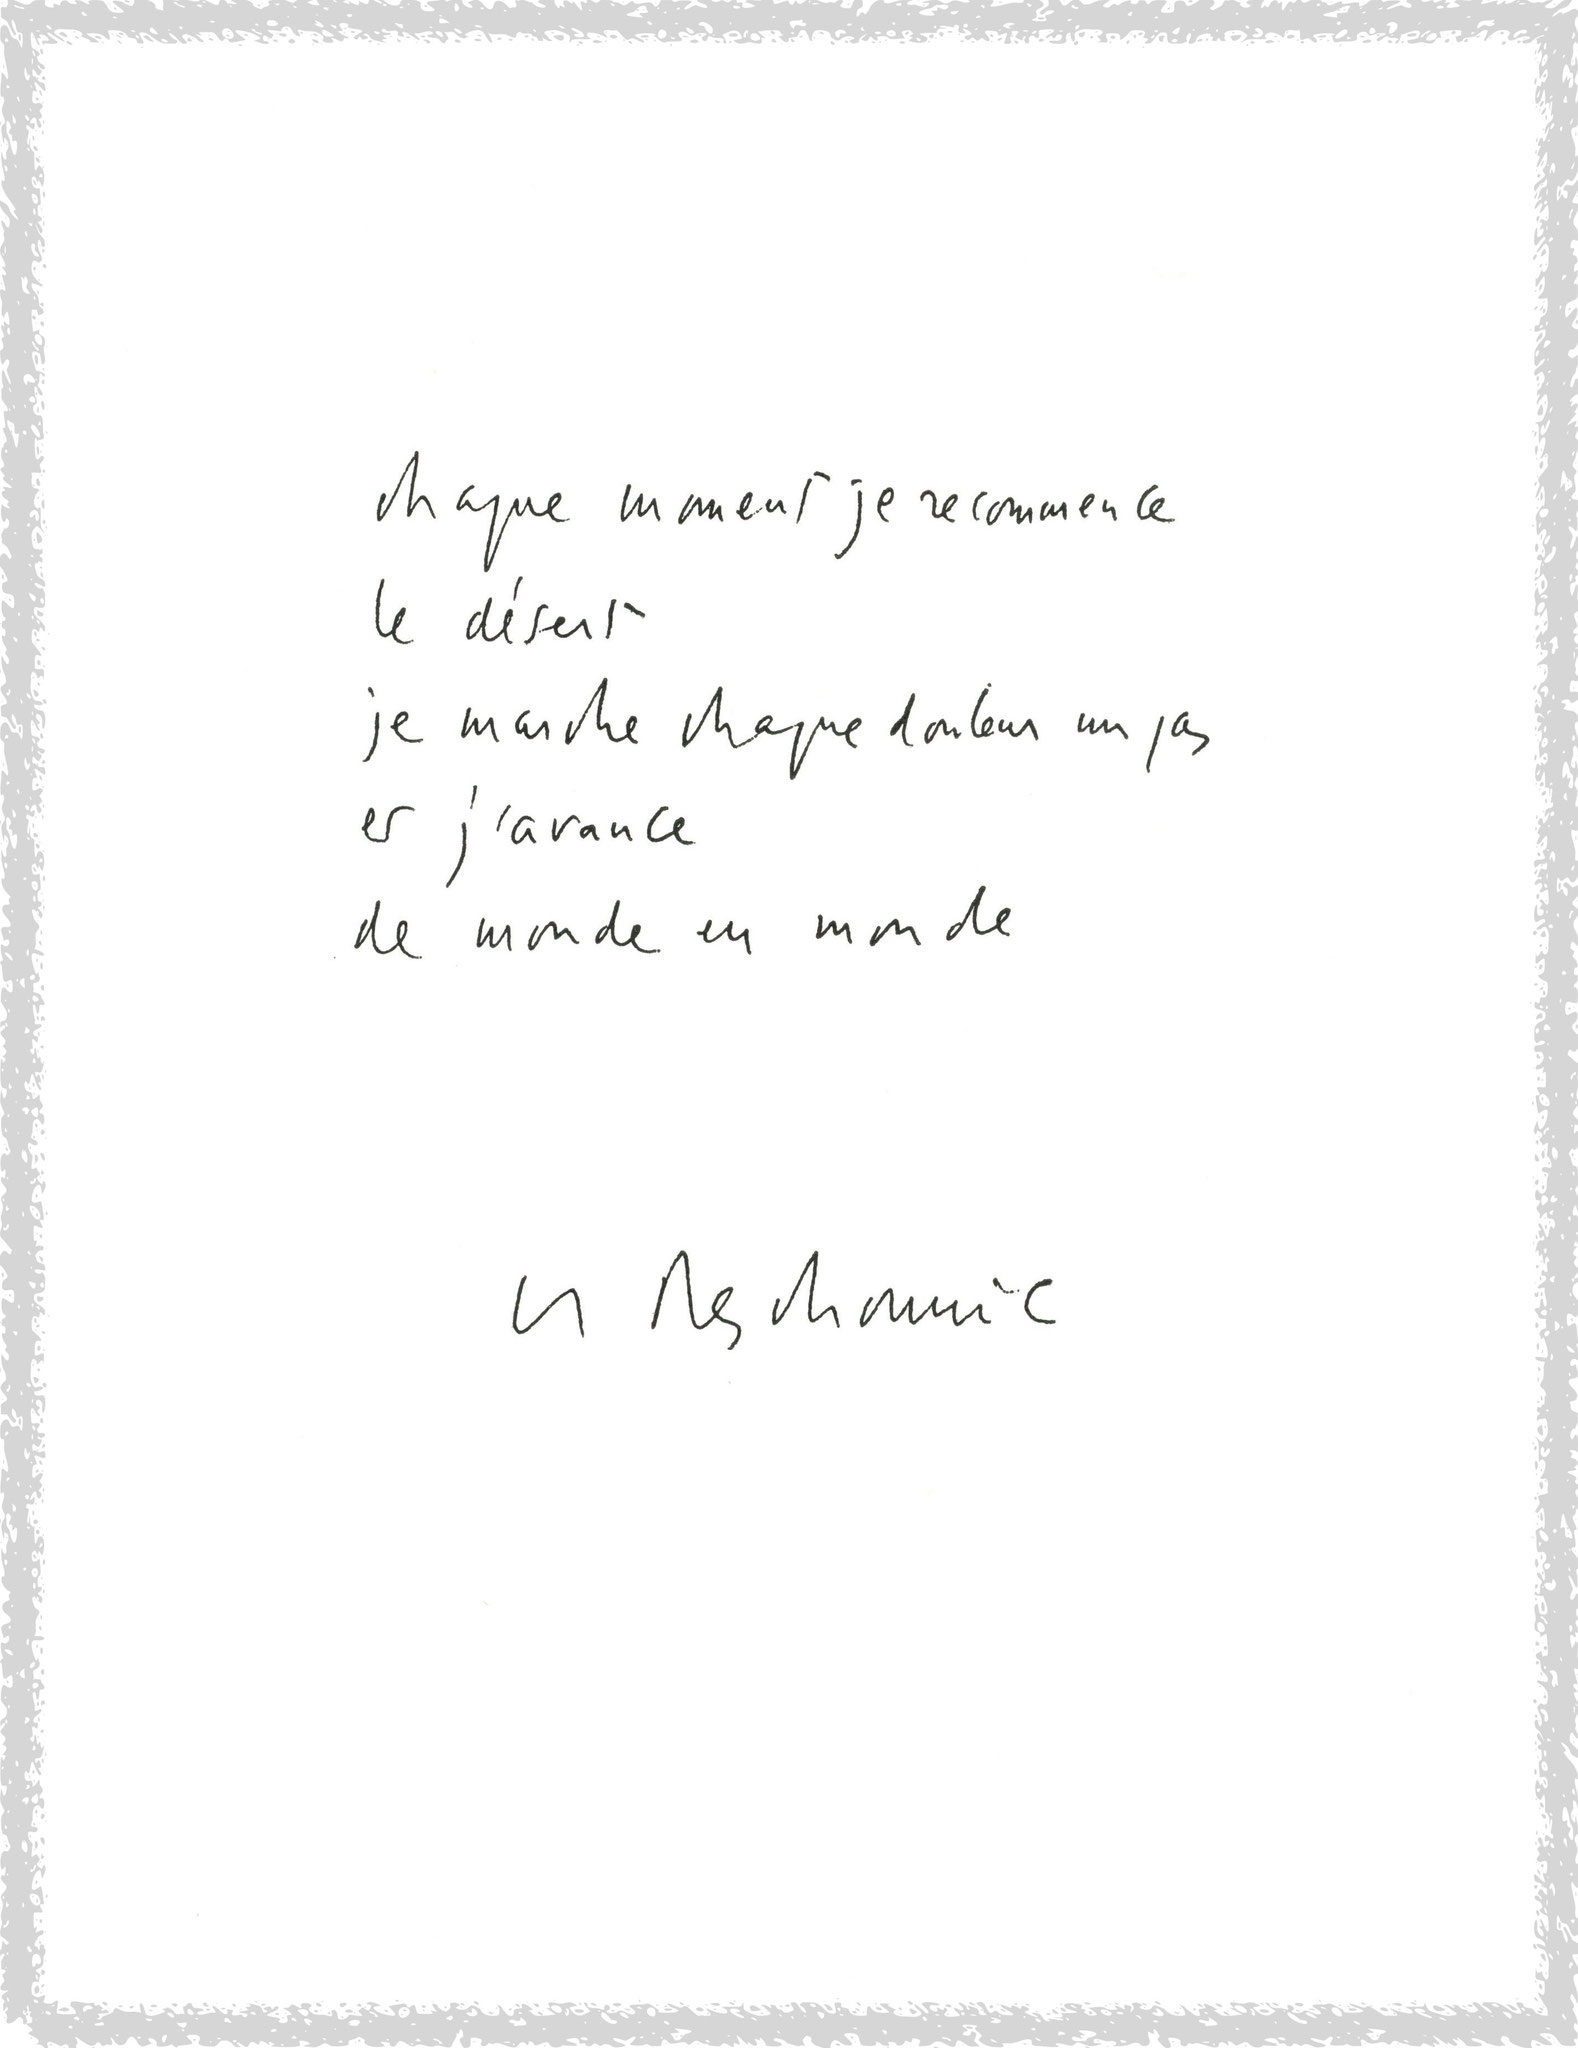 chaque moment je recommence
le désert
je marche chaque douleur un pas
et j'avance
de monde en monde
H Meschonnic